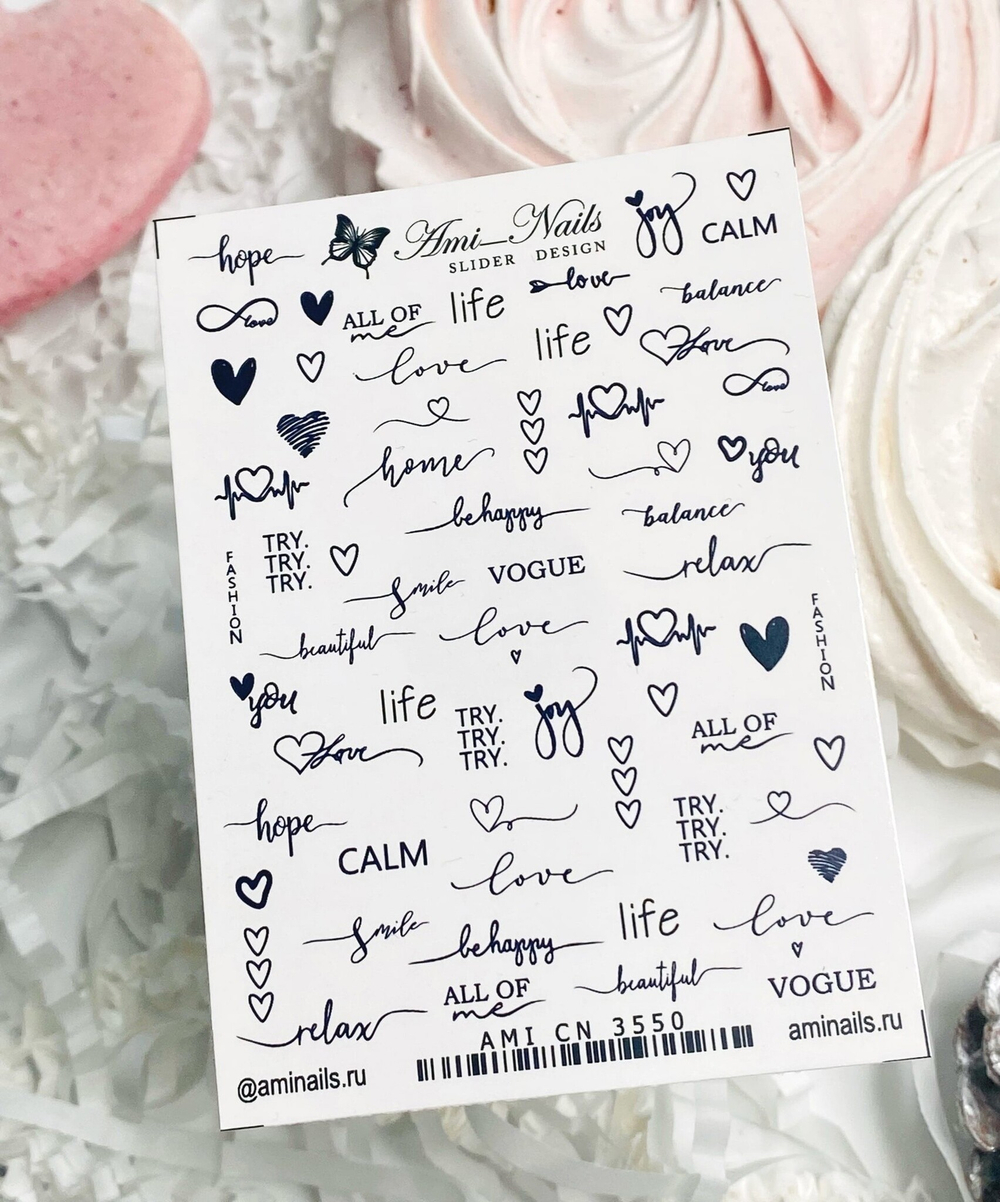 hope
Ami_Nails
SLIDER DESIGN
joy
CALM
love
ALL OF
me
life
love
balance
love
life
love
love
home
you
be happy
balance
TRY.
TRY.
TRY.
FASHION
smile
VOGUE
relax
beautiful
love
FASHION
you
life
TRY.
TRY.
TRY.
joy
ALL OF
me
love
hope
CALM
TRY.
TRY.
TRY.
love
smile
be happy
life
love
relax
ALL OF
me
beautiful
VOGUE
AMI CN 3550
@aminails.ru
aminails.ru